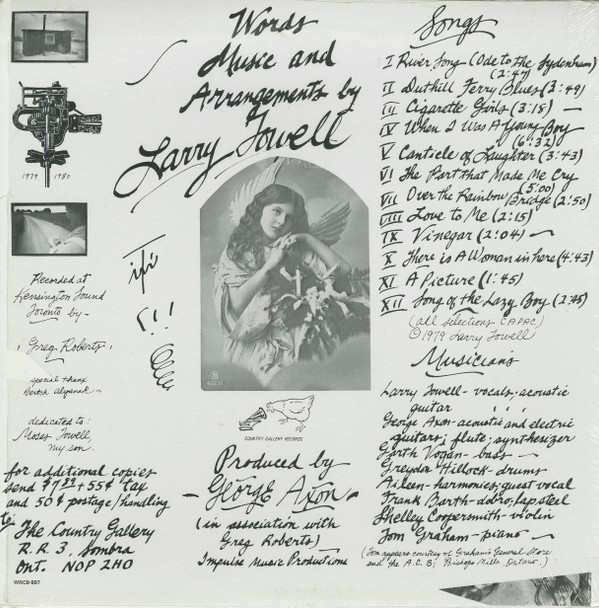 Words
Music and
Arrangements by
Larry Towell
1979 1980
Recorded at
Kensington Sound
Toronto by -
Greg Roberts
special thanx
dedicated to:
Moses Towell,
my son.
for additional copies
send $7.89 + 55¢ tax
and 50¢ postage/handling
to
The Country Gallery
R.R. 3, Sombra
Ont. N0P 2H0
WRC8-997
COUNTRY GALLERY RECORDS
Produced by
- George Axon -
(in association with
Greg Roberts)
Impulse Music Productions
Songs
I River Song - (Ode to the Sydenham)
(2:47)
II Duthill Ferry Blues (3:49)
III Cigarette Girls (3:18) -
IV When I Was A Young Boy
(6:32)
V Canticle of Laughter (3:43)
VI The Part that Made Me Cry
(5:00)
VII Over the Rainbow Bridge (2:50)
VIII Love to Me (2:15)
IX Vinegar (2:04) -
X There is A Woman in here (4:43)
XI A Picture (1:45)
XII Song of the Lazy Boy (2:45)
(all selections CAPAC)
© 1979 Larry Towell
Musicians
Larry Towell - vocals, acoustic
guitar
George Axon - acoustic and electric
guitars; flute; synthesizer
Garth Vogan - bass -
Greydon Hillock - drums
Aileen - harmonies; guest vocal
Frank Barth - dobro, lap steel
Shelley Coopersmith - violin
Tom Graham - piano -
(Tom appears courtesy of Graham's General Store
and the A.C.B; Bishops Mills, Ontario.)